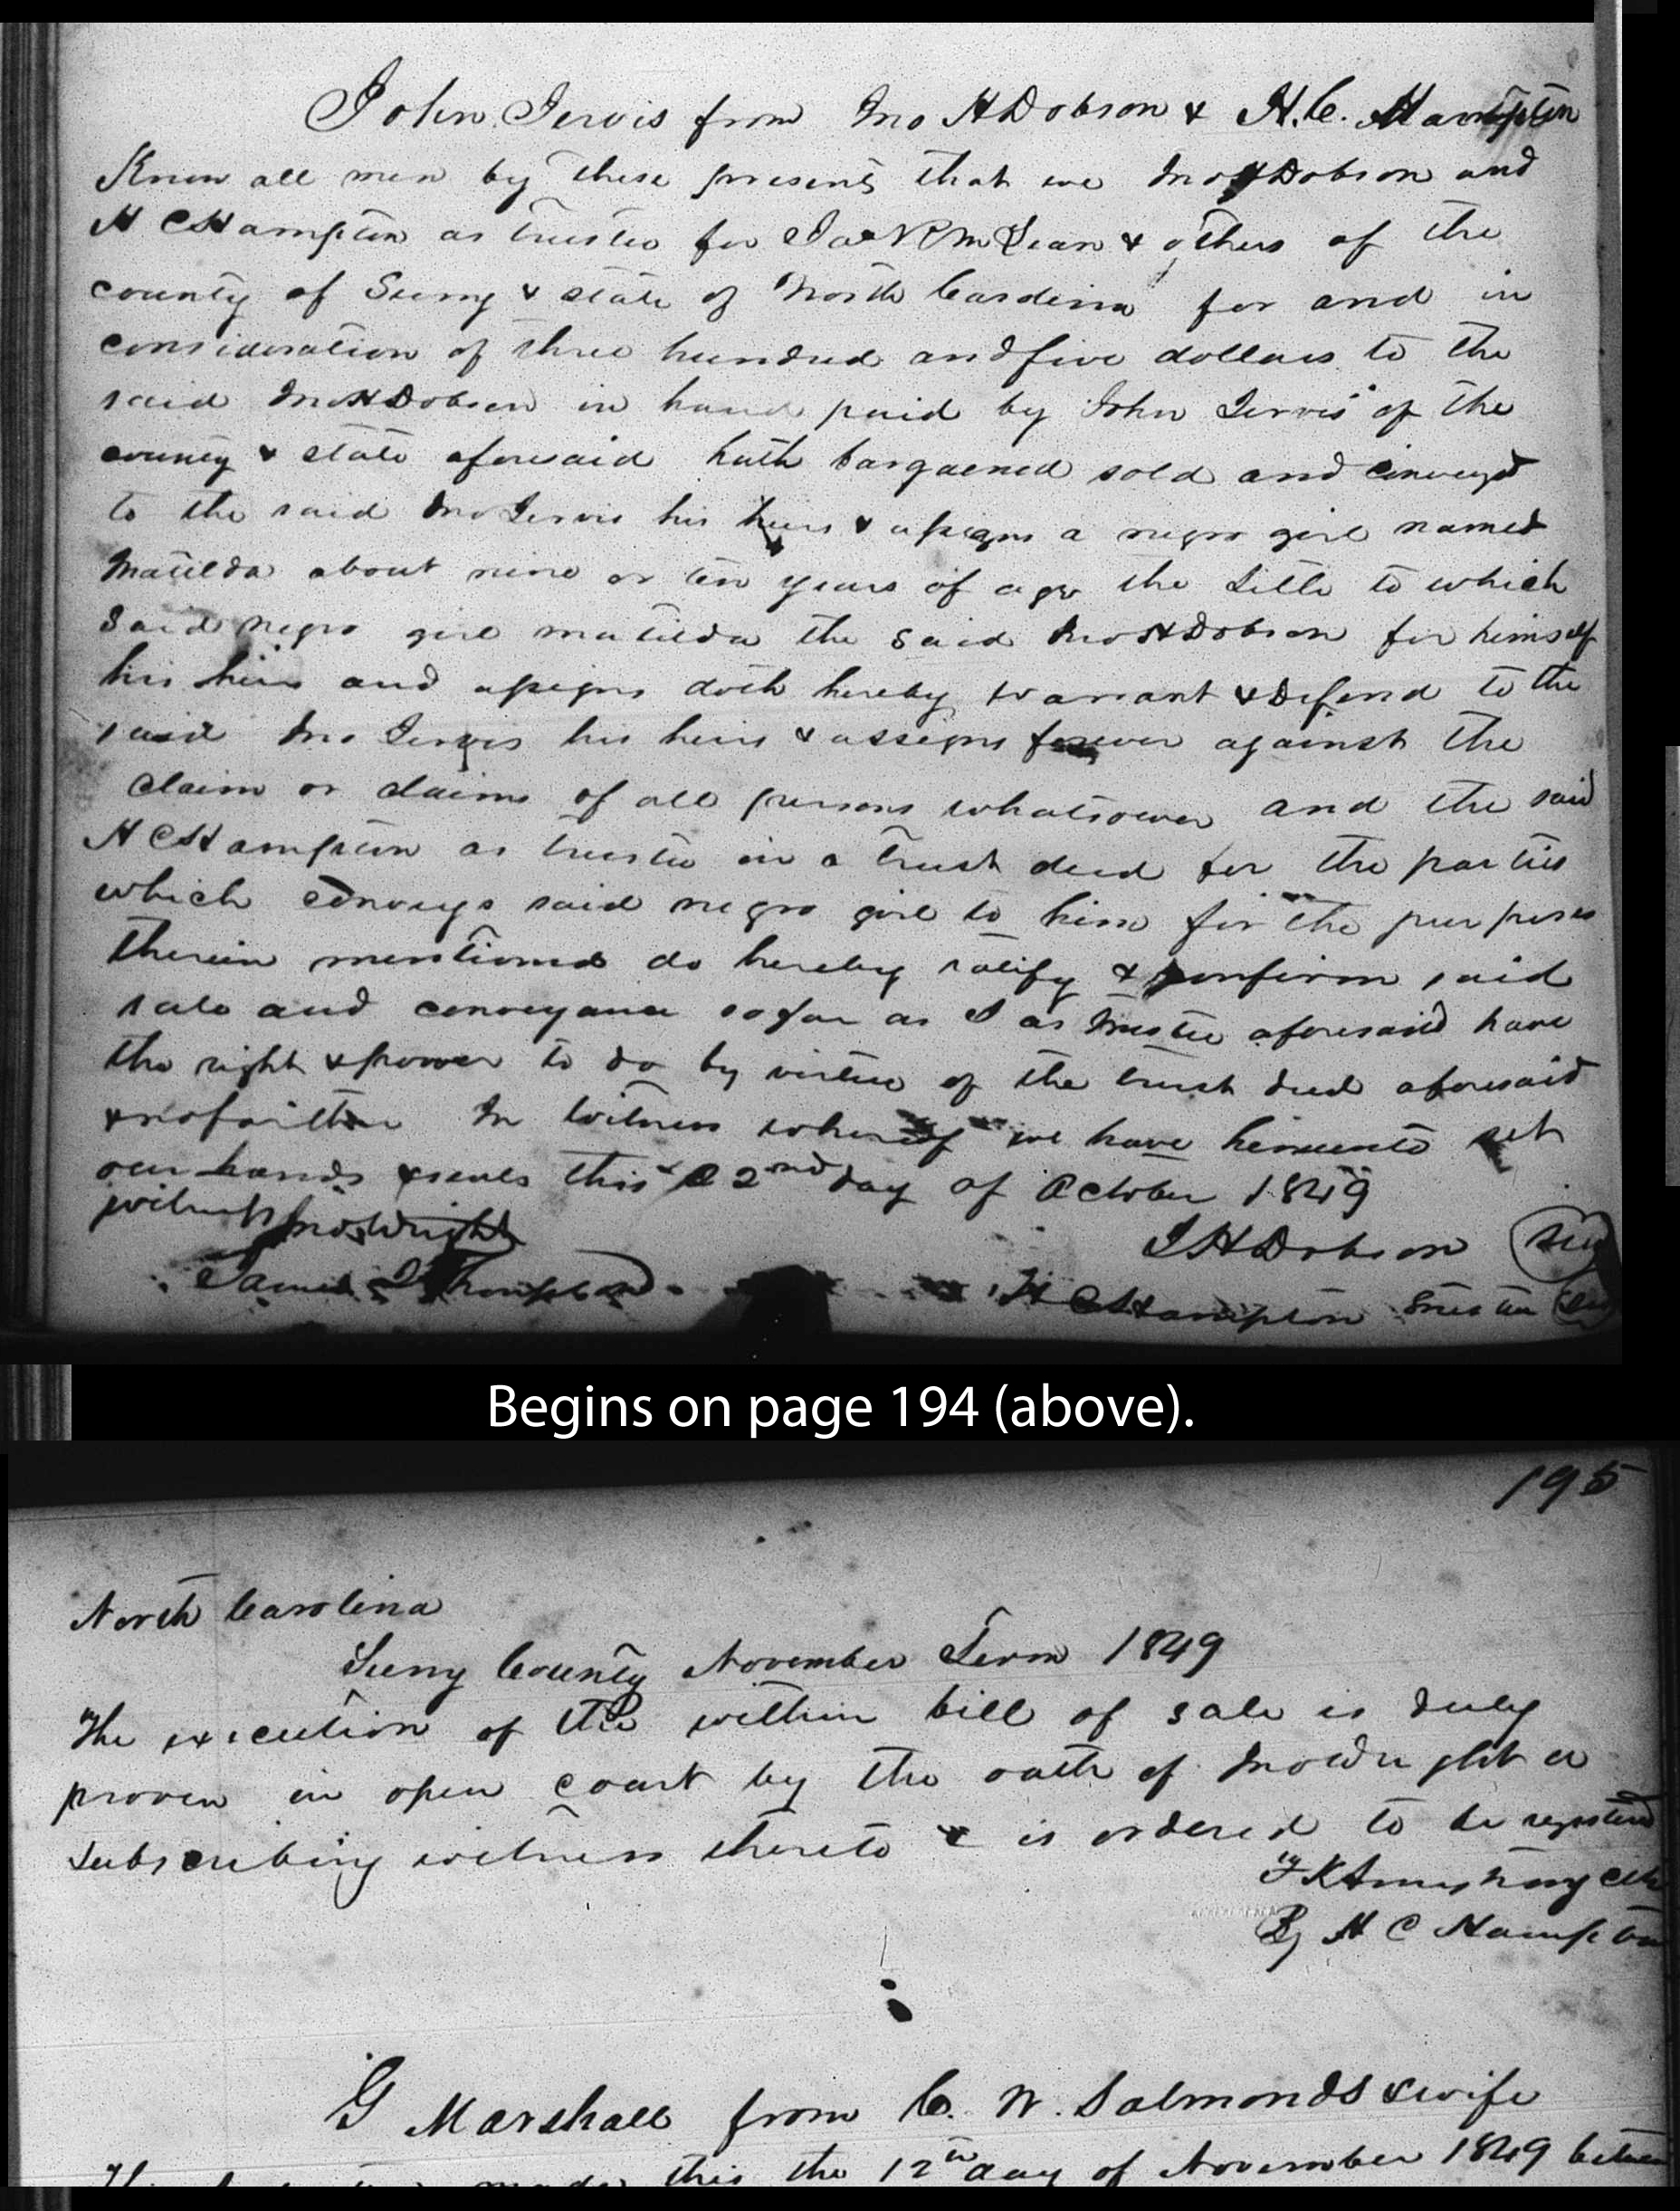 John Jervis from Jno H Dobson & H.C. Hampton
Know all men by these presents that we Jno H Dobson and
H C Hampton as trustee for & others of the
county of Surry & state of North Carolina for and in
consideration of three hundred and five dollars to the
said Jno H Dobson in hand paid by John Jervis of the
county & state aforesaid hath bargaened sold and conveyed
to the said Jno Jervis his heirs & assigns a negro girl named
Matilda about nine or ten years of age the title to which
said negro girl matilda the said Jno H Dobson for himself
his heirs and assigns doth hereby warrant & Defend to the
said Jno Jervis his heirs & assigns forever against the
claim or claims of all persons whatsoever and the said
H C Hampton as trustee in a trust deed for the parties
which conveys said negro girl to him for the purposes
therein mentioned do hereby ratify & confirm said
sale and conveyance so far as I as trustee aforesaid have
the right & power to do by virtue of the trust deed aforesaid
& no further In witness whereof we have hereunto set
our hands & seals this 22nd day of October 1849
witness Jno Wright
J H Dobson Seal
James Thompson
H C Hampton Trustee Seal
Begins on page 194 (above).
195
North Carolina
Surry County November Term 1849
The execution of the within bill of sale is duly
proven in open court by the oath of Jno Wright a
subscribing witness thereto & is ordered to be registered
F K Armstrong Clk
By H C Hampton
G Marshall from C. W. Salmonds & wife
made this the 12th day of November 1849 between